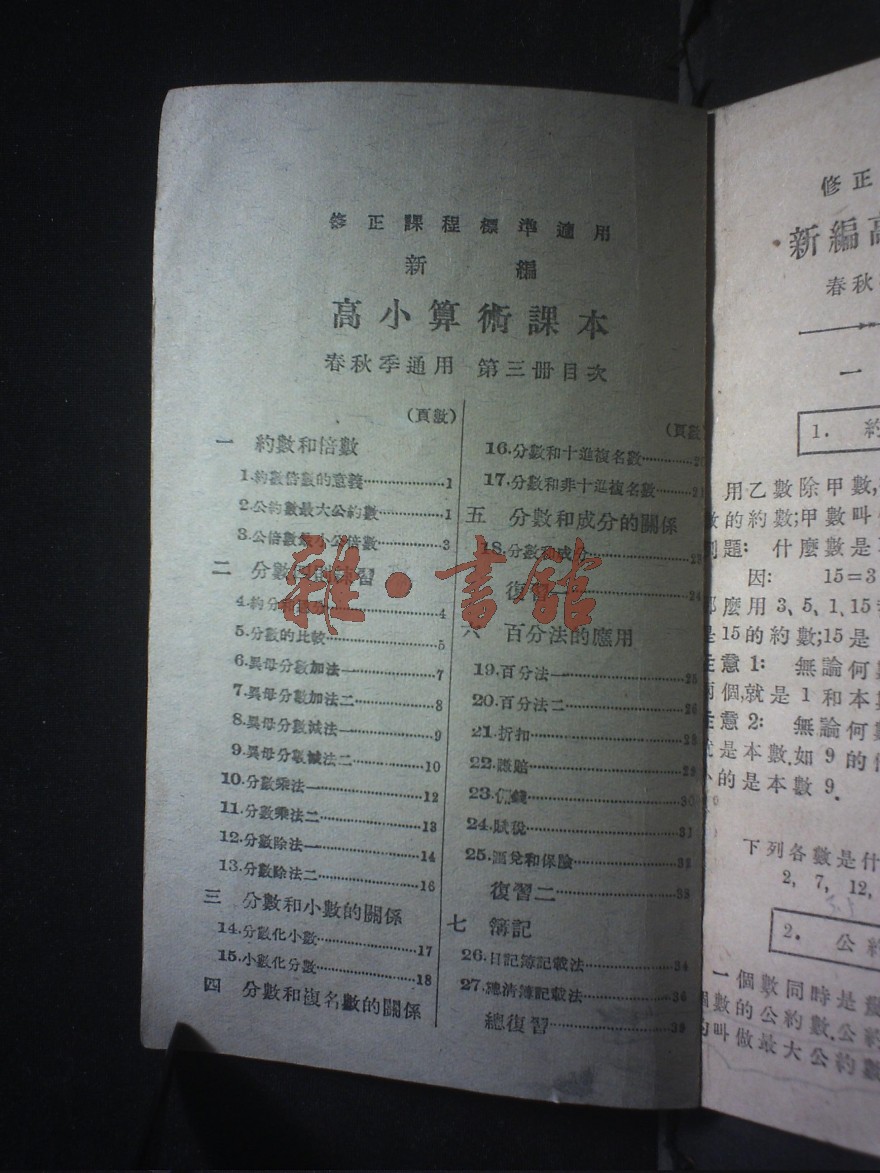 修正課程標準適用
新編
高小算術課本
春秋季通用 第三册目次
(頁數)
一 約數和倍數
1.約數倍數的意義……1
2.公約數最大公約數……1
3.公倍數最小公倍數……3
二 分數
4.約分和……4
5.分數的比較……5
6.異母分數加法一……7
7.異母分數加法二……8
8.異母分數減法一……9
9.異母分數減法二……10
10.分數乘法一……12
11.分數乘法二……13
12.分數除法一……14
13.分數除法二……16
三 分數和小數的關係
14.分數化小數……17
15.小數化分數……18
四 分數和複名數的關係
(頁數)
16.分數和十進複名數……
17.分數和非十進複名數……
五 分數和成分的關係
18.分數和成分……
復習一……24
六 百分法的應用
19.百分法一……25
20.百分法二……26
21.折扣……
22.賺賠……
23.佣錢……30
24.賦稅……31
25.匯兌和保險……
復習二……33
七 簿記
26.日記簿記載法……34
27.總清簿記載法……36
總復習……
雜·書館
修正
新編高
春秋
一
1. 約
用乙數除甲數,
的約數;甲數叫
題: 什麼數是
因: 15=3
麼用 3、5、1、15
是15的約數;15是
注意1: 無論何
兩個,就是 1 和本
注意2: 無論何
就是本數,如 9 的
的是本數 9.
下列各數是什
2, 7, 12,
2. 公約
一個數同時是
數的公約數.公約
叫做最大公約數